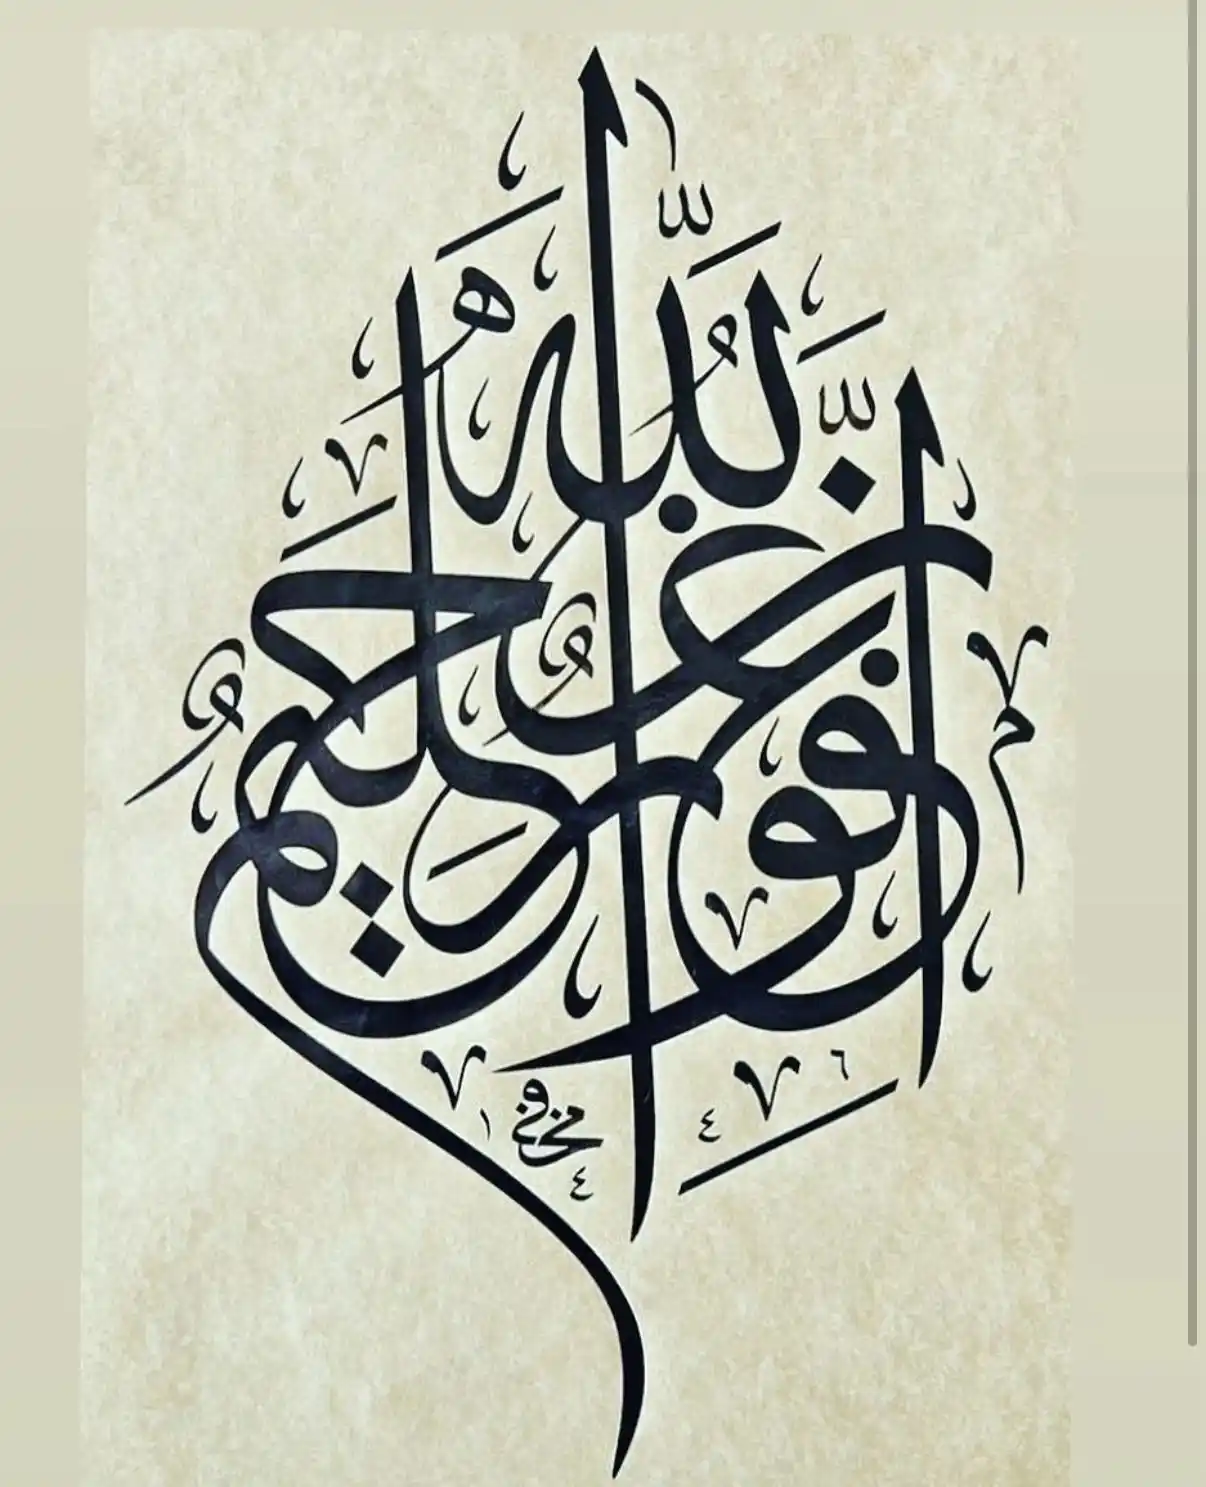 إِنَّ اللَّهَ غَفُورٌ حَلِيمٌ